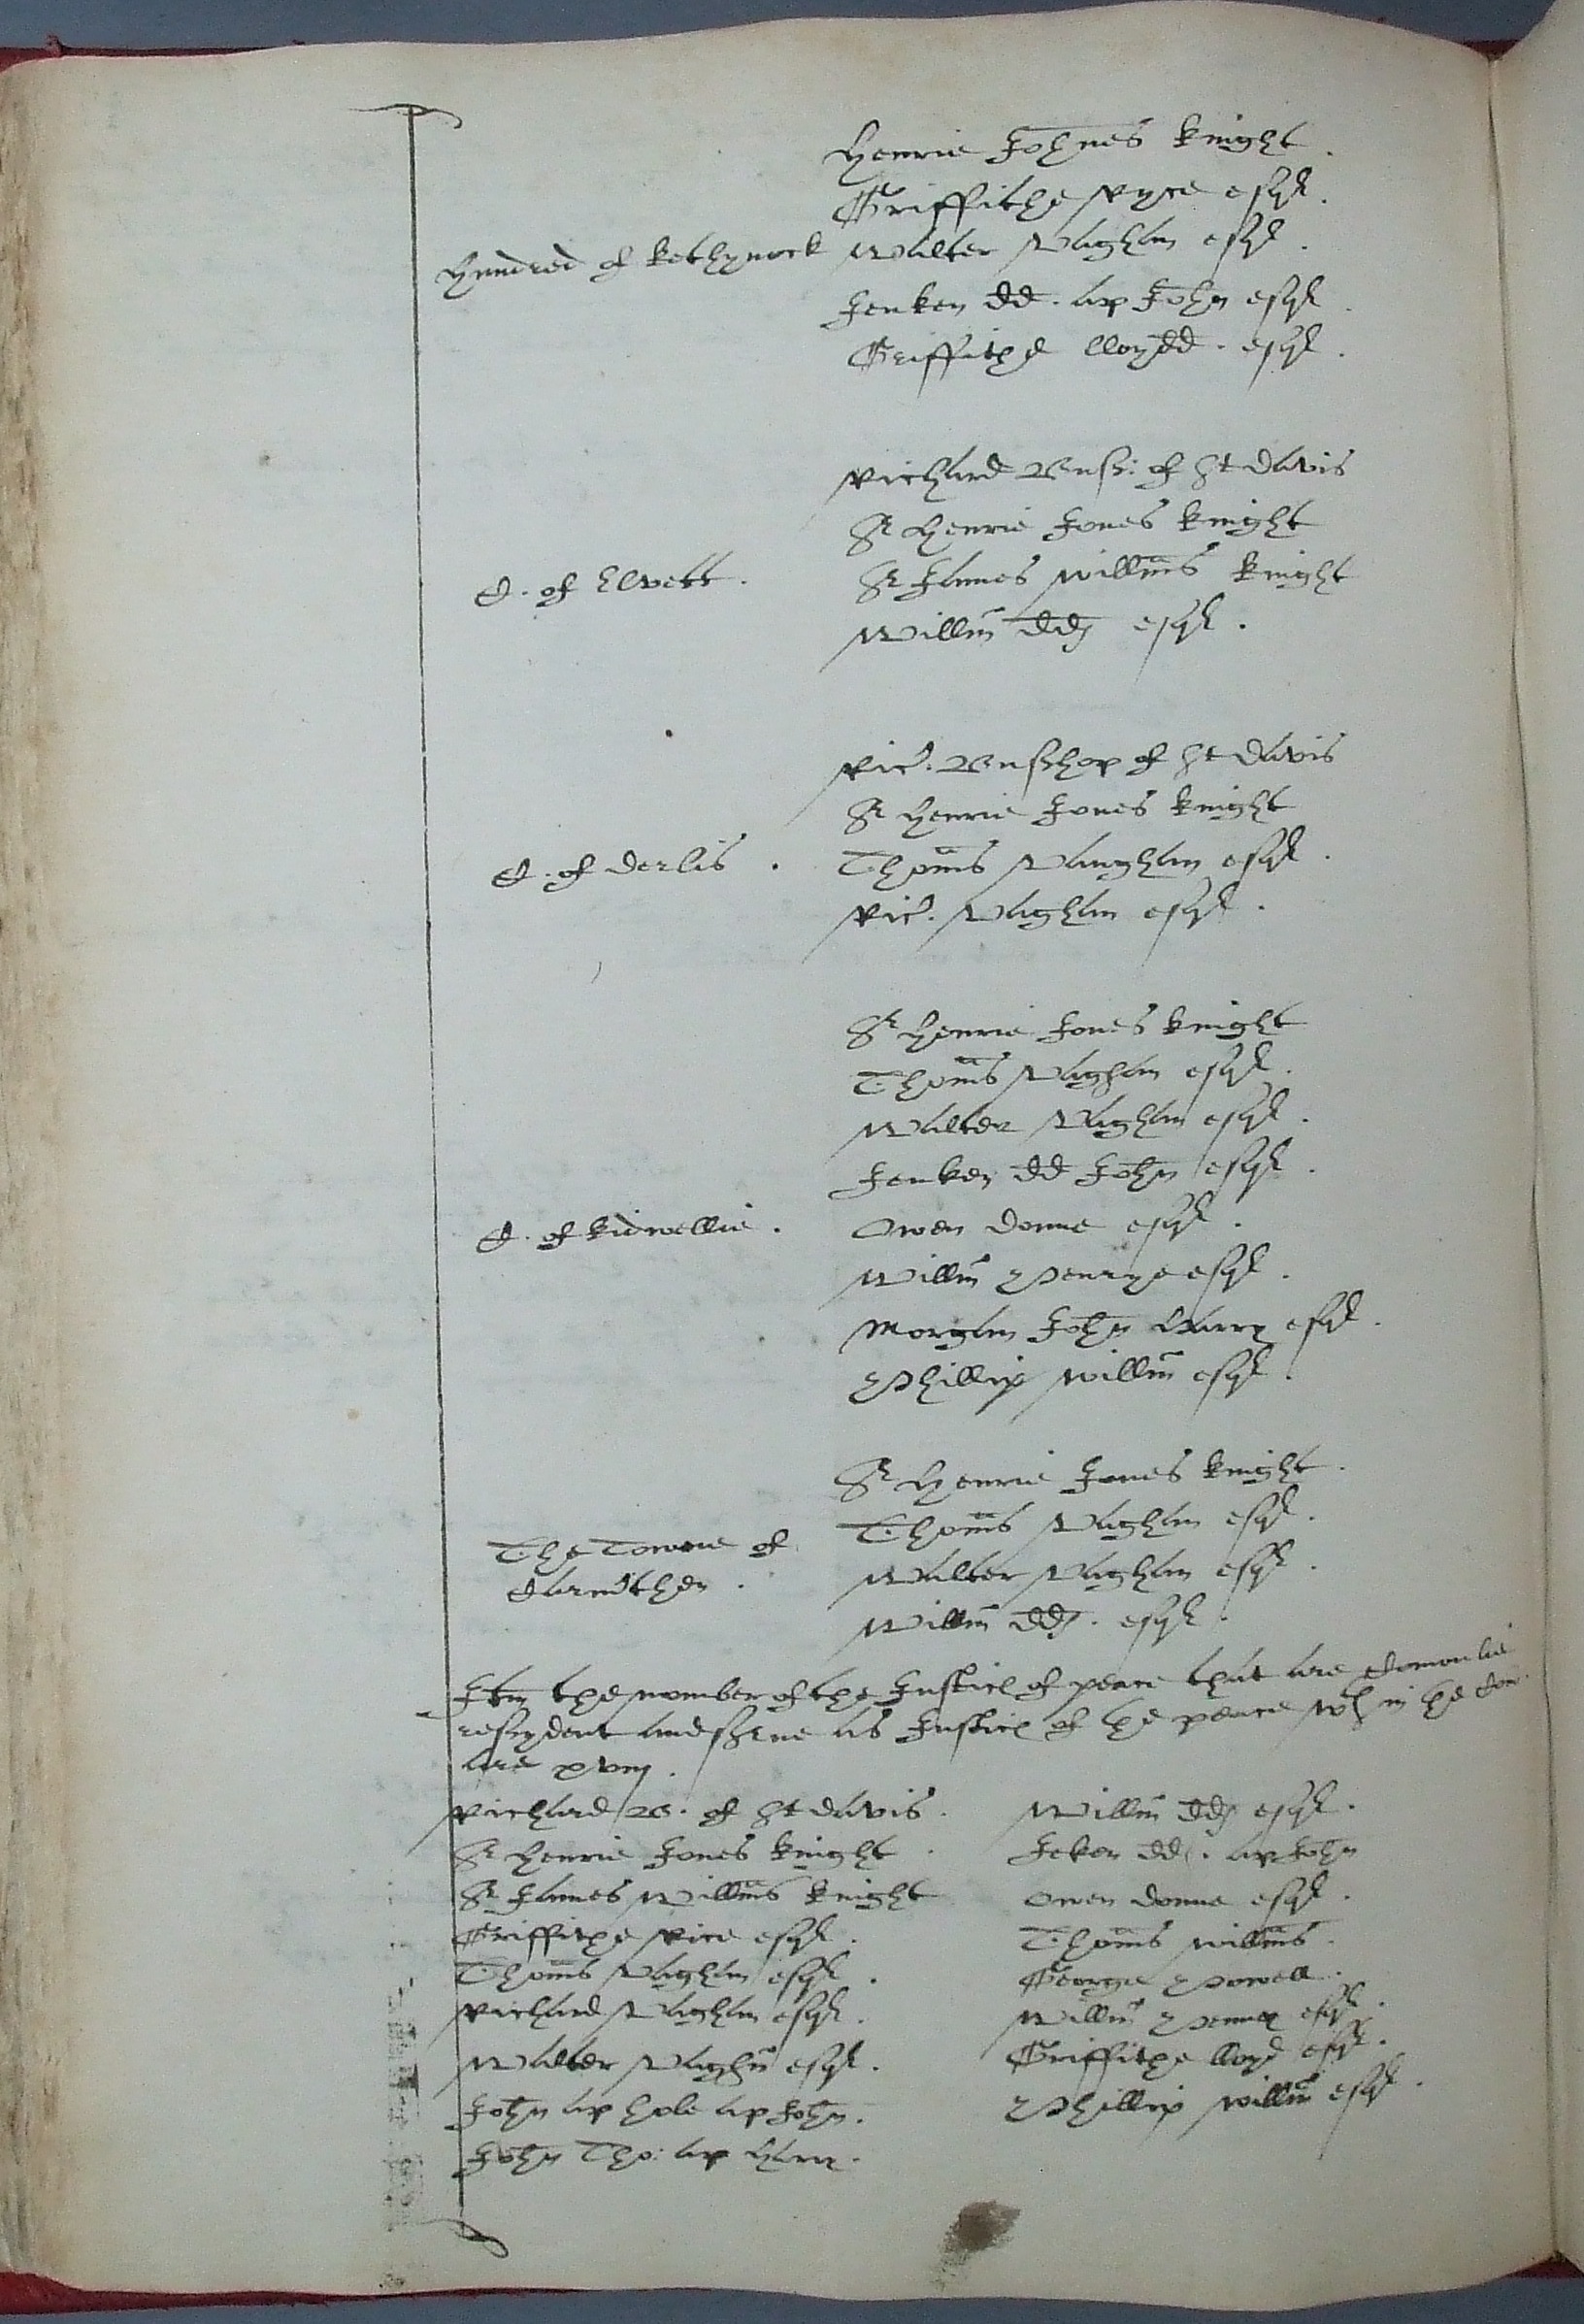 Henrie Johnes knight
Griffithe Ryce esqr.
Hundred of kethynock Walter Vaghan esqr.
Jenken dd. ap John esqr.
Griffithe lloydd. esqr.
Richard Bussh: of St davis
Sr Henrie Jones knight
C. of Elvett.
Sr James Willms knight
Willm dd esqr.
Ric. Busshop of St davis
Sr Henrie Jones knight
C. of derlis. Thoms Vaughan esqr.
Ric. Vaghan esqr.
Sr Henrie Jones knight
Thoms Vaghan esqr.
Walter Vaghan esqr.
Jenken dd John esqr.
C. of kidwellie. Owen donne esqr.
Willm Penrye esqr.
Morgan John Harry esqr.
Phillip Willm esqr.
Sr Henrie Jones knight.
The Towne of Thoms Vaghan esqr.
Carmthen. Walter Vaghan esqr.
Willm dd. esqr.
Itm the nomber of the Justics of peace that are Comonlie
resydent and serve as Justics of the peace wth in the Com
are xviij.
Richard B. of St davis. Willm dd esqr.
Sr Henrie Jones knight. Jeken dd. ap John
Sr James Willms knight Owen donne esqr.
Griffithe Rice esqr. Thoms Willms.
Thoms Vaghan esqr. George Powell.
Richard Vaghan esqr. Willm Penry esqr.
Walter Vaghn esqr. Griffithe lloyd esqr.
John ap hole ap John. Phillip Willm esqr.
John Tho: ap Harry.